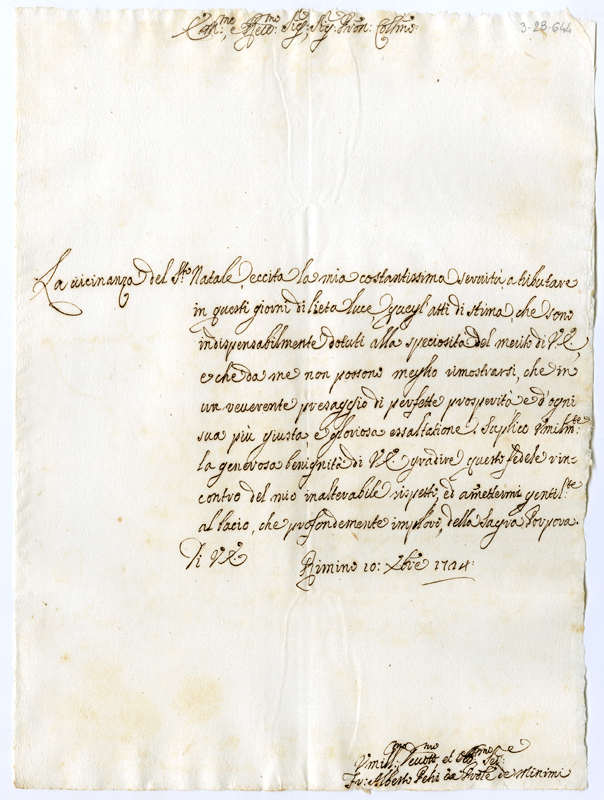 3-28-644
La vicinanza del Sto. Natale, eccita la mia costantissima servitù, a tributare
in questi giorni di lieta luce, quegl'atti di stima, che sono
indispensabilmente dovuti alla speciosità del merito di VE,
e che da me non possono meglio rimostrarsi, che in
un reverente presaggio di perfette prosperità e d'ogni
sua più giusta, e gloriosa essaltatione. Suplico Vmilmte:
la generosa benignità di VE gradire questo fedele rin-
contro del mio inalterabile rispetto, ed amettermi gentilte.
al bacio, che profondemente imploro, della Sagra Porpora.
Di VE Rimino 10: Xbre 1724
Fr: Alberto de Minimi